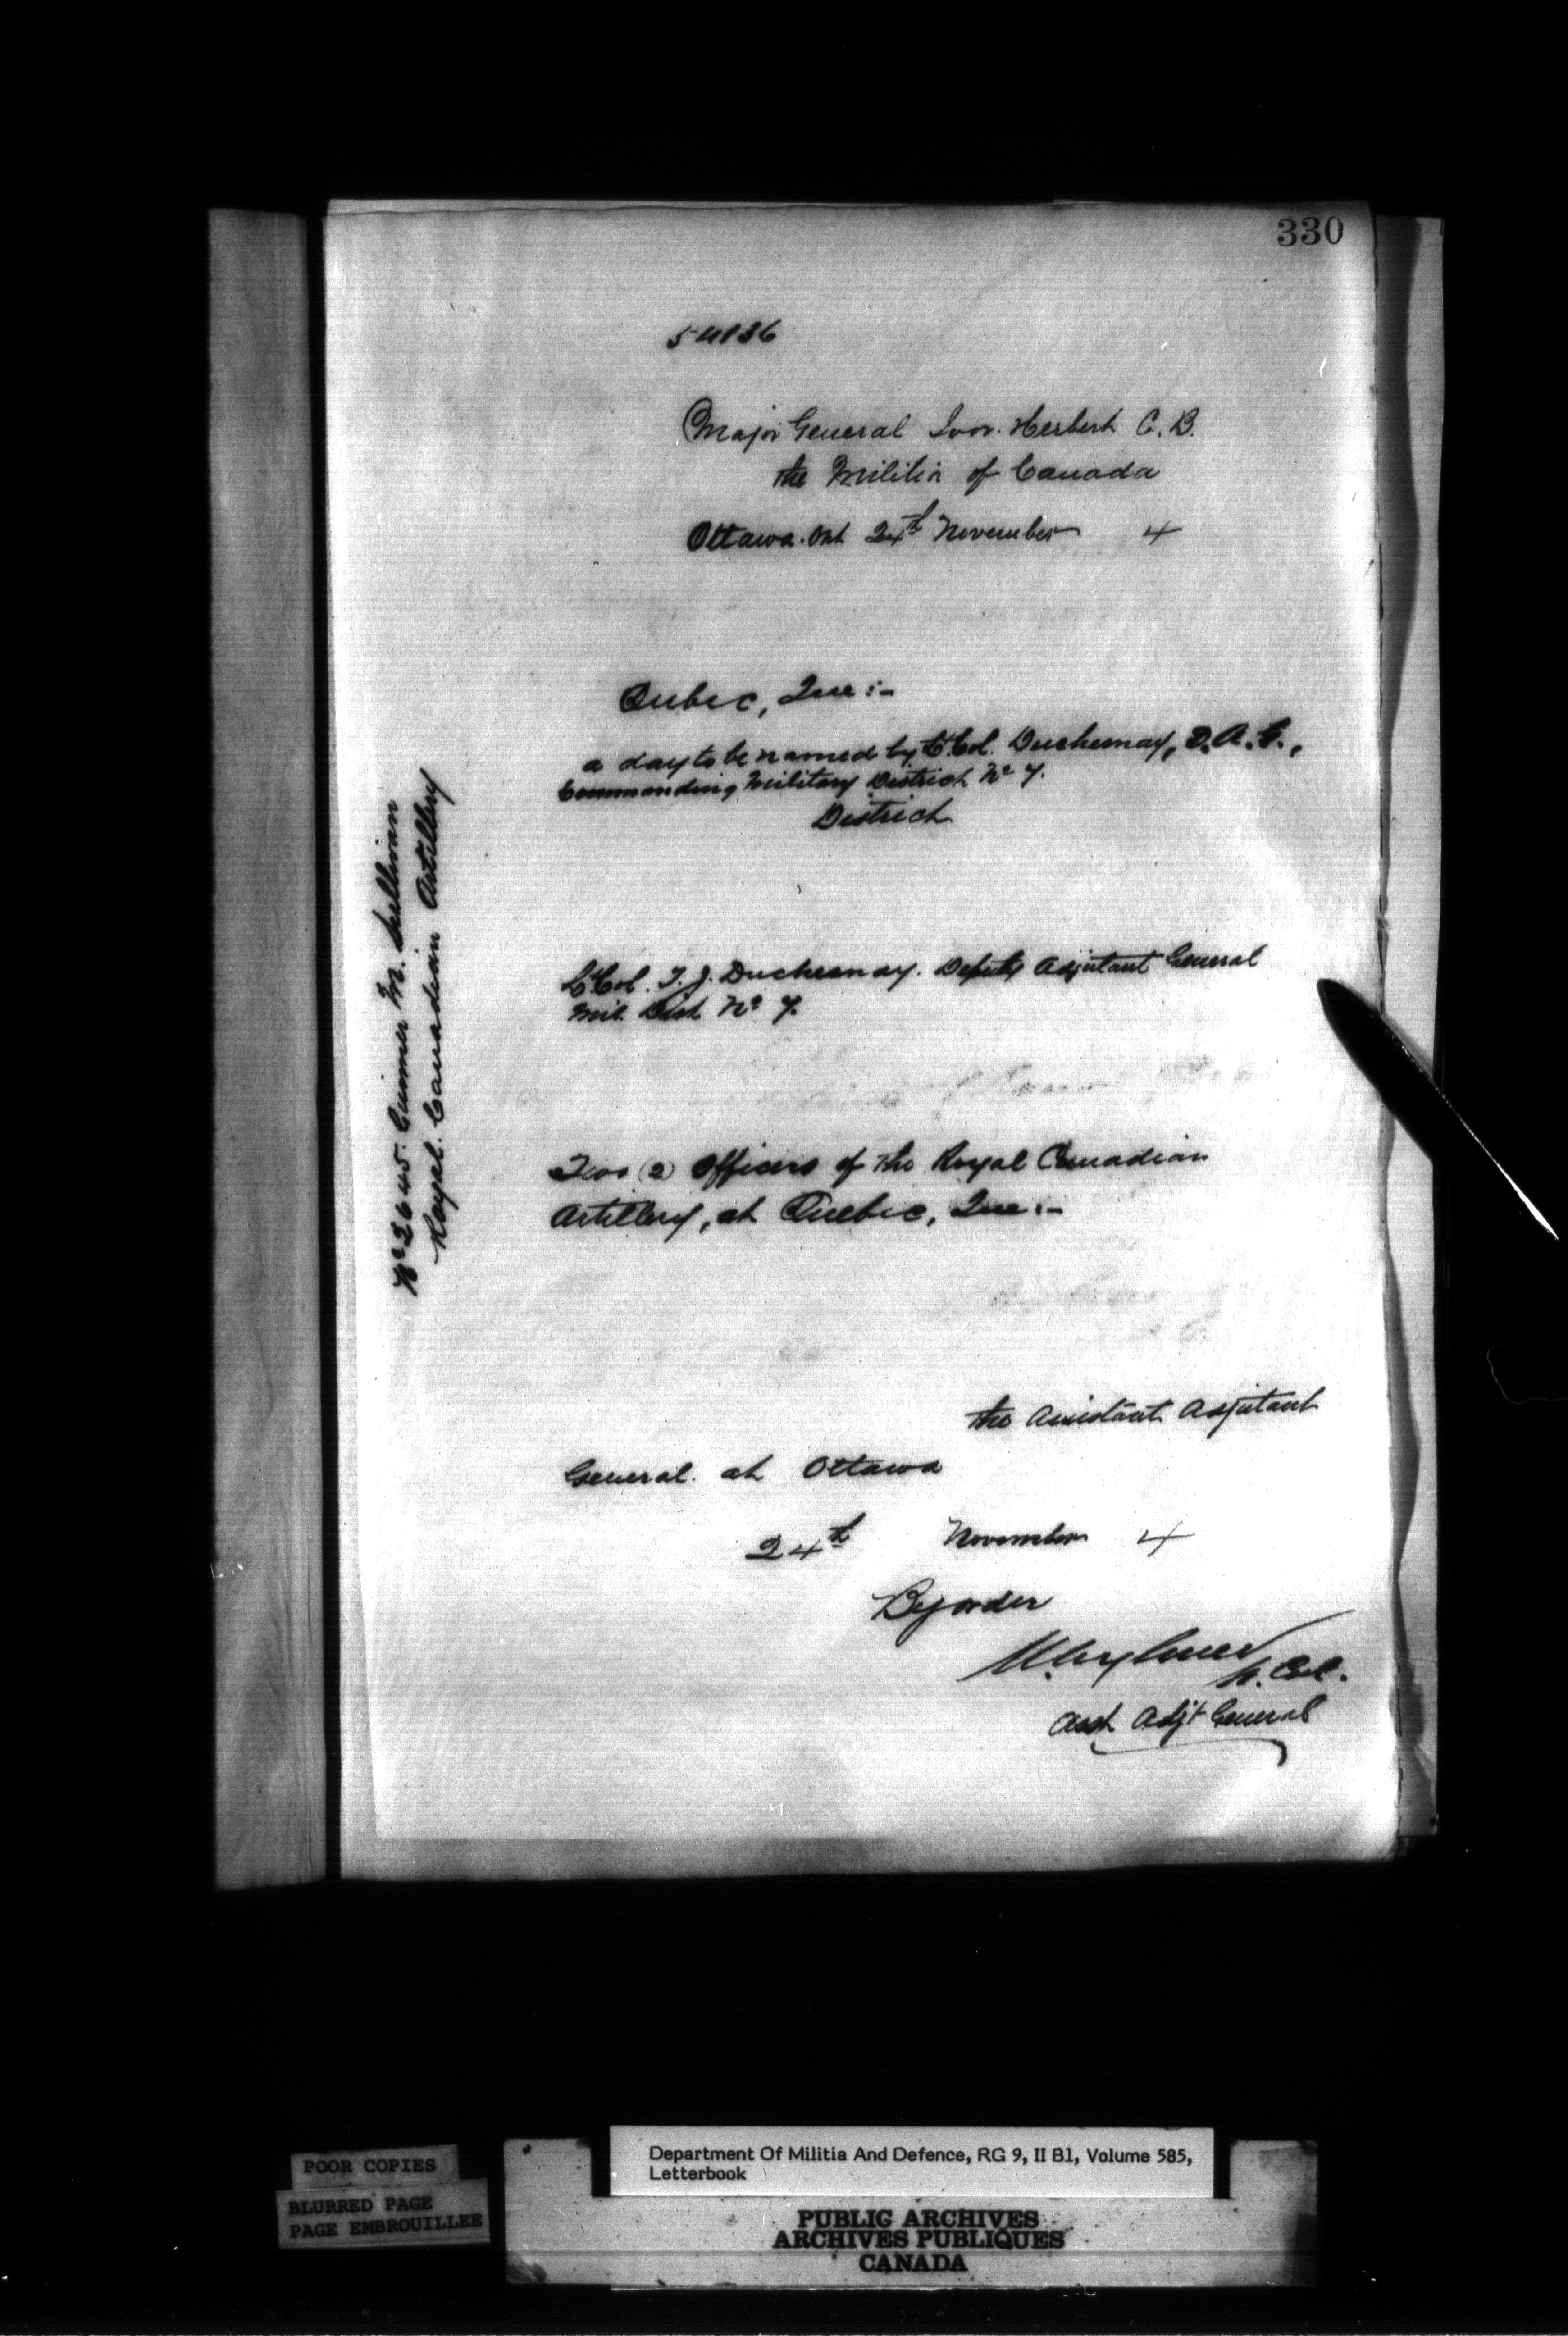 330
54836
Major General Ivor Herbert C.B.
the Militia of Canada
Ottawa. Ont 24th November 4
Qubec, Que :-
a day to be named by Lt. Col. Duchesnay, D.A.G.,
Commanding Military District No 7.
District
No 2645. Gunner M. Sullivan
Royal Canadian Artillery
Lt. Col. T. J. Duchesnay. Deputy Adjutant General
Mil. Dist No 7.
Two (2) Officers of the Royal Canadian
Artillery, at Quebec, Que :-
the Assistant Adjutant
General. at Ottawa
24th November 4
By order
Lt. Col.
Asst Adjt General
POOR COPIES
BLURRED PAGE
PAGE EMBROUILLEE
Department Of Militia And Defence, RG 9, II B1, Volume 585,
Letterbook
PUBLIC ARCHIVES
ARCHIVES PUBLIQUES
CANADA